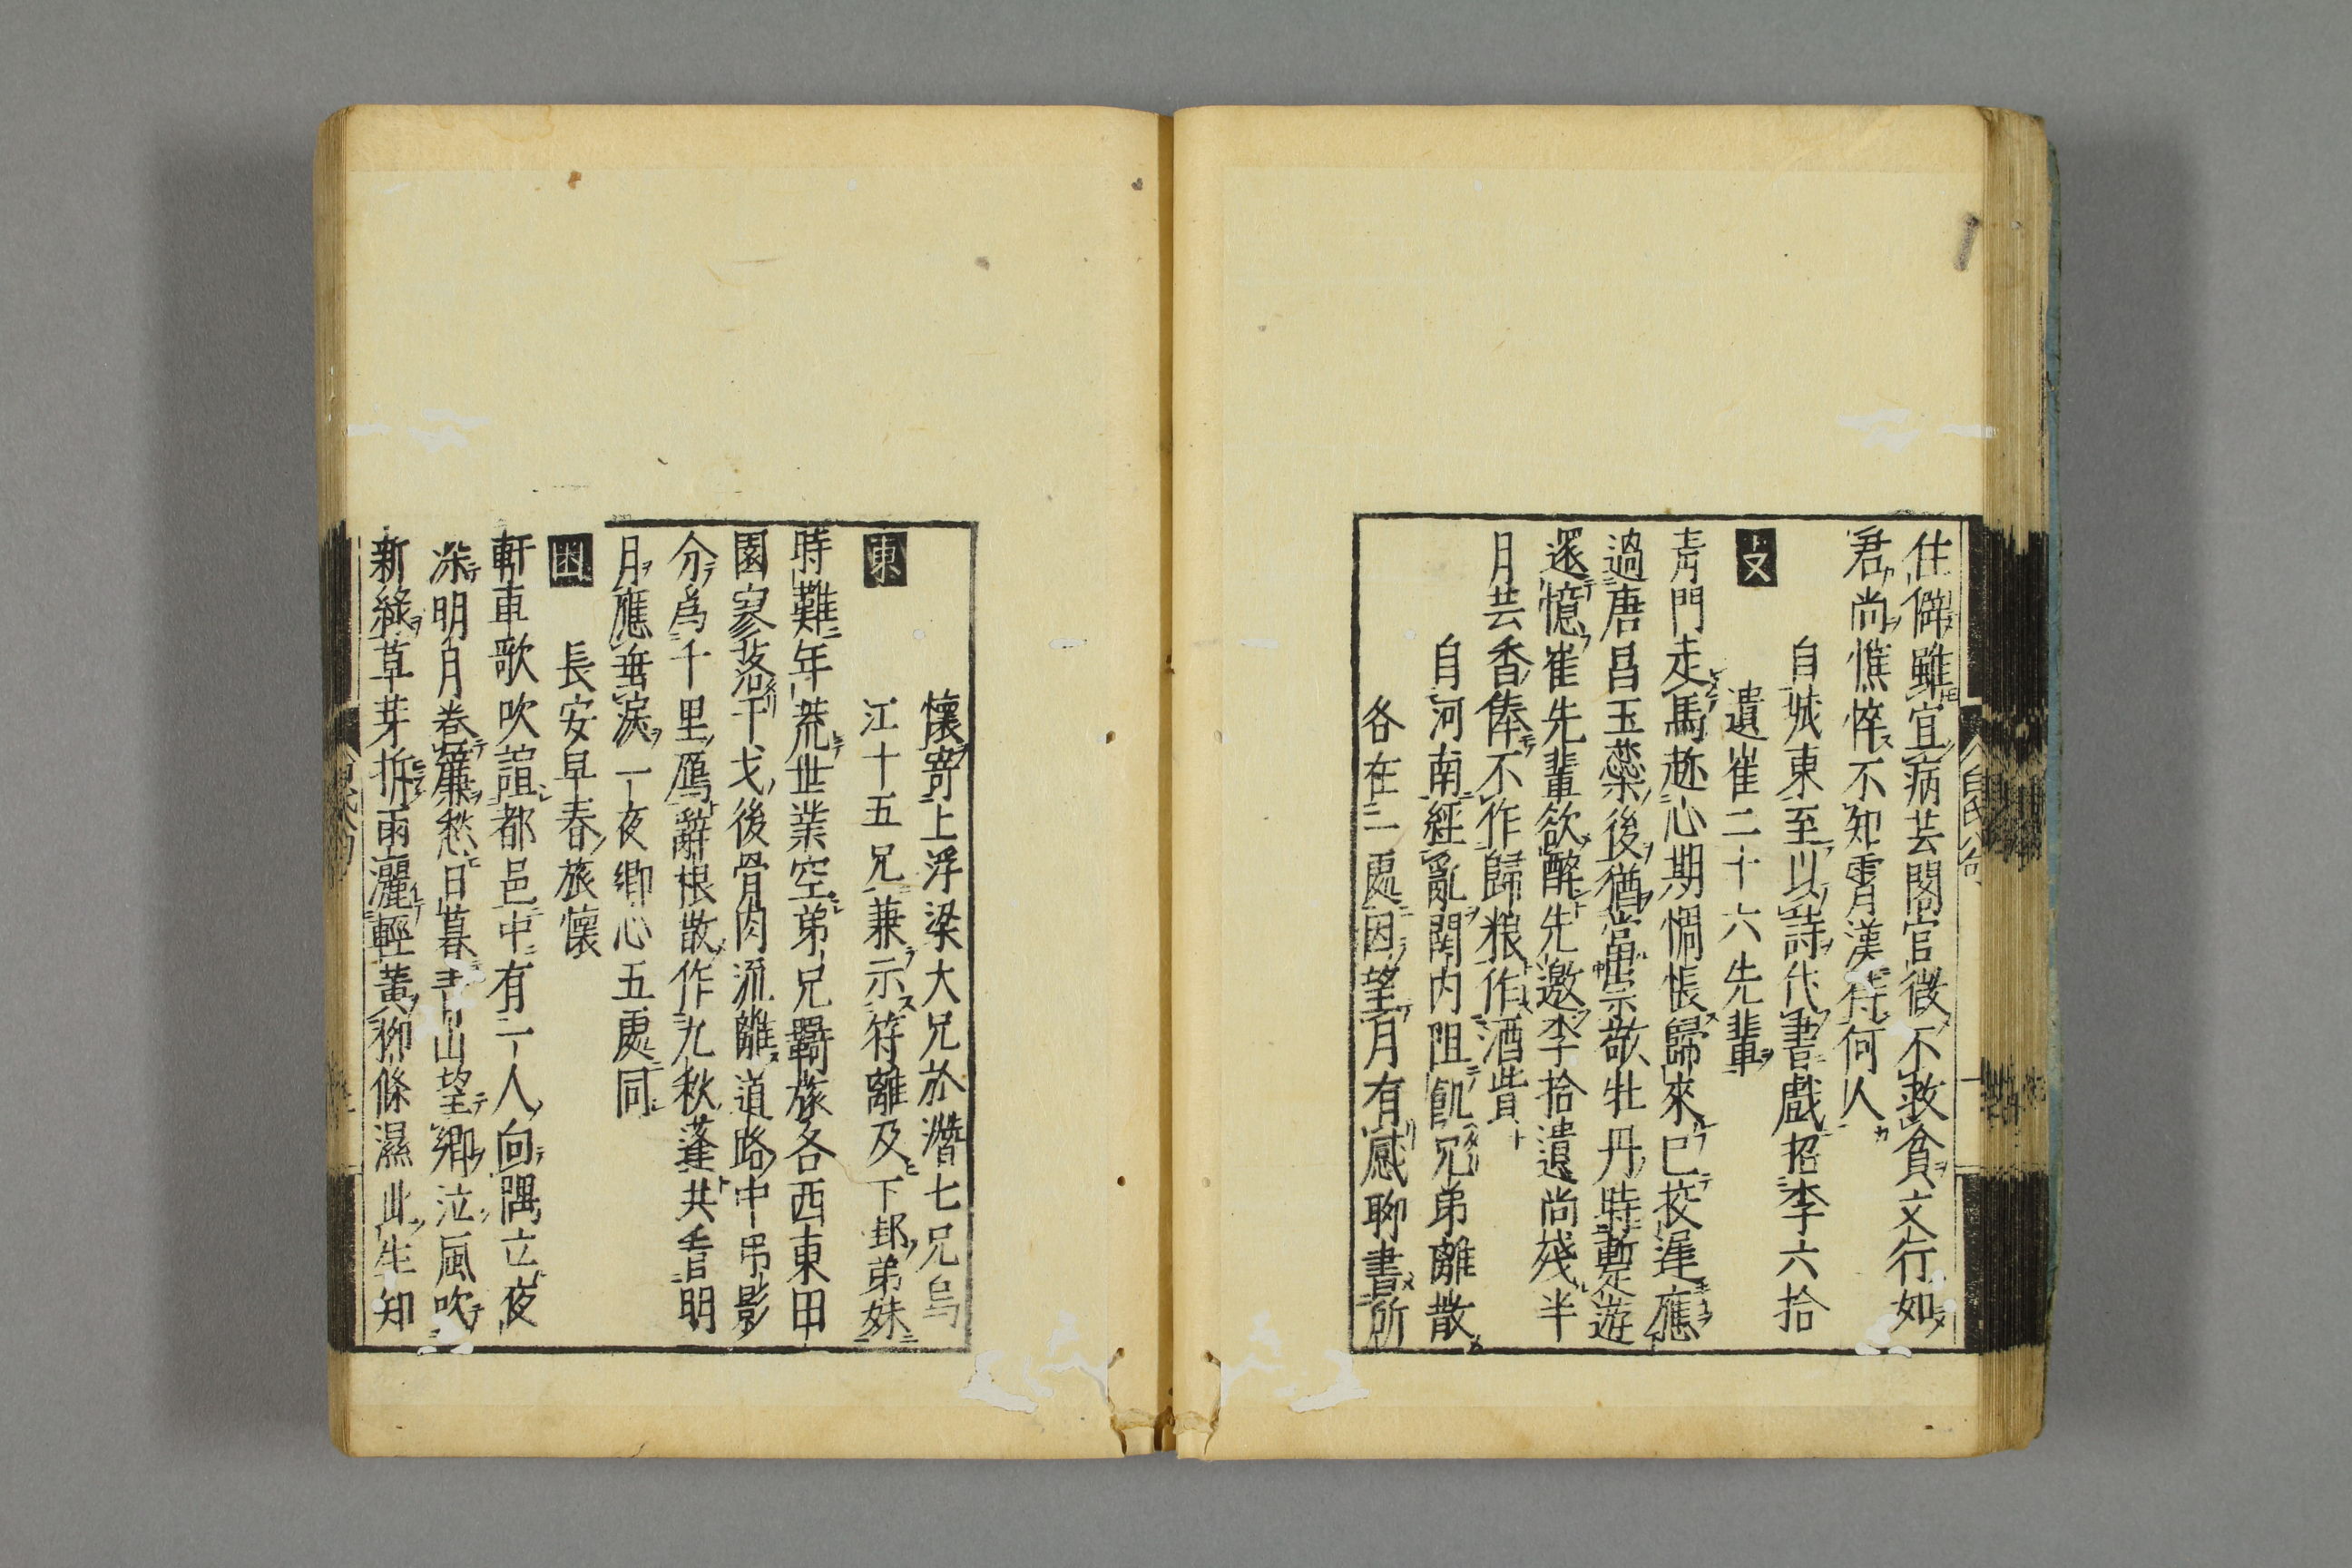 住僻雖宜病芸閣官微不救貧文行如
君尚憔悴不知霄漢待何人
自城東至以詩代書戲招李六拾
遺崔二十六先輩
又
青門走馬趂心期惆悵歸來已挍遲應
過唐昌玉蘂後猶當崇敬牡丹時蹔遊
還憶崔先輩欲醉先邀李拾遺尚殘半
月芸香俸不作歸粮作酒貲
自河南經亂関内阻飢兄弟離散
各在二處因望月有感聊書所
懷寄上浮梁大兄於潛七兄烏
江十五兄兼示符離及下邽弟妹
東
時難年荒世業空弟兄羇旅各西東田
園寥落干戈後骨肉流離道路中吊影
分爲千里鴈辭根散作九秋蓬共看明
月應垂淚一夜鄉心五處同
長安早春旅懷
軒車歌吹諠都邑中有一人向隅立夜
深明月卷簾愁日暮青山望鄉泣風吹
新綠草芽拆雨灑輕黃柳條濕此生知